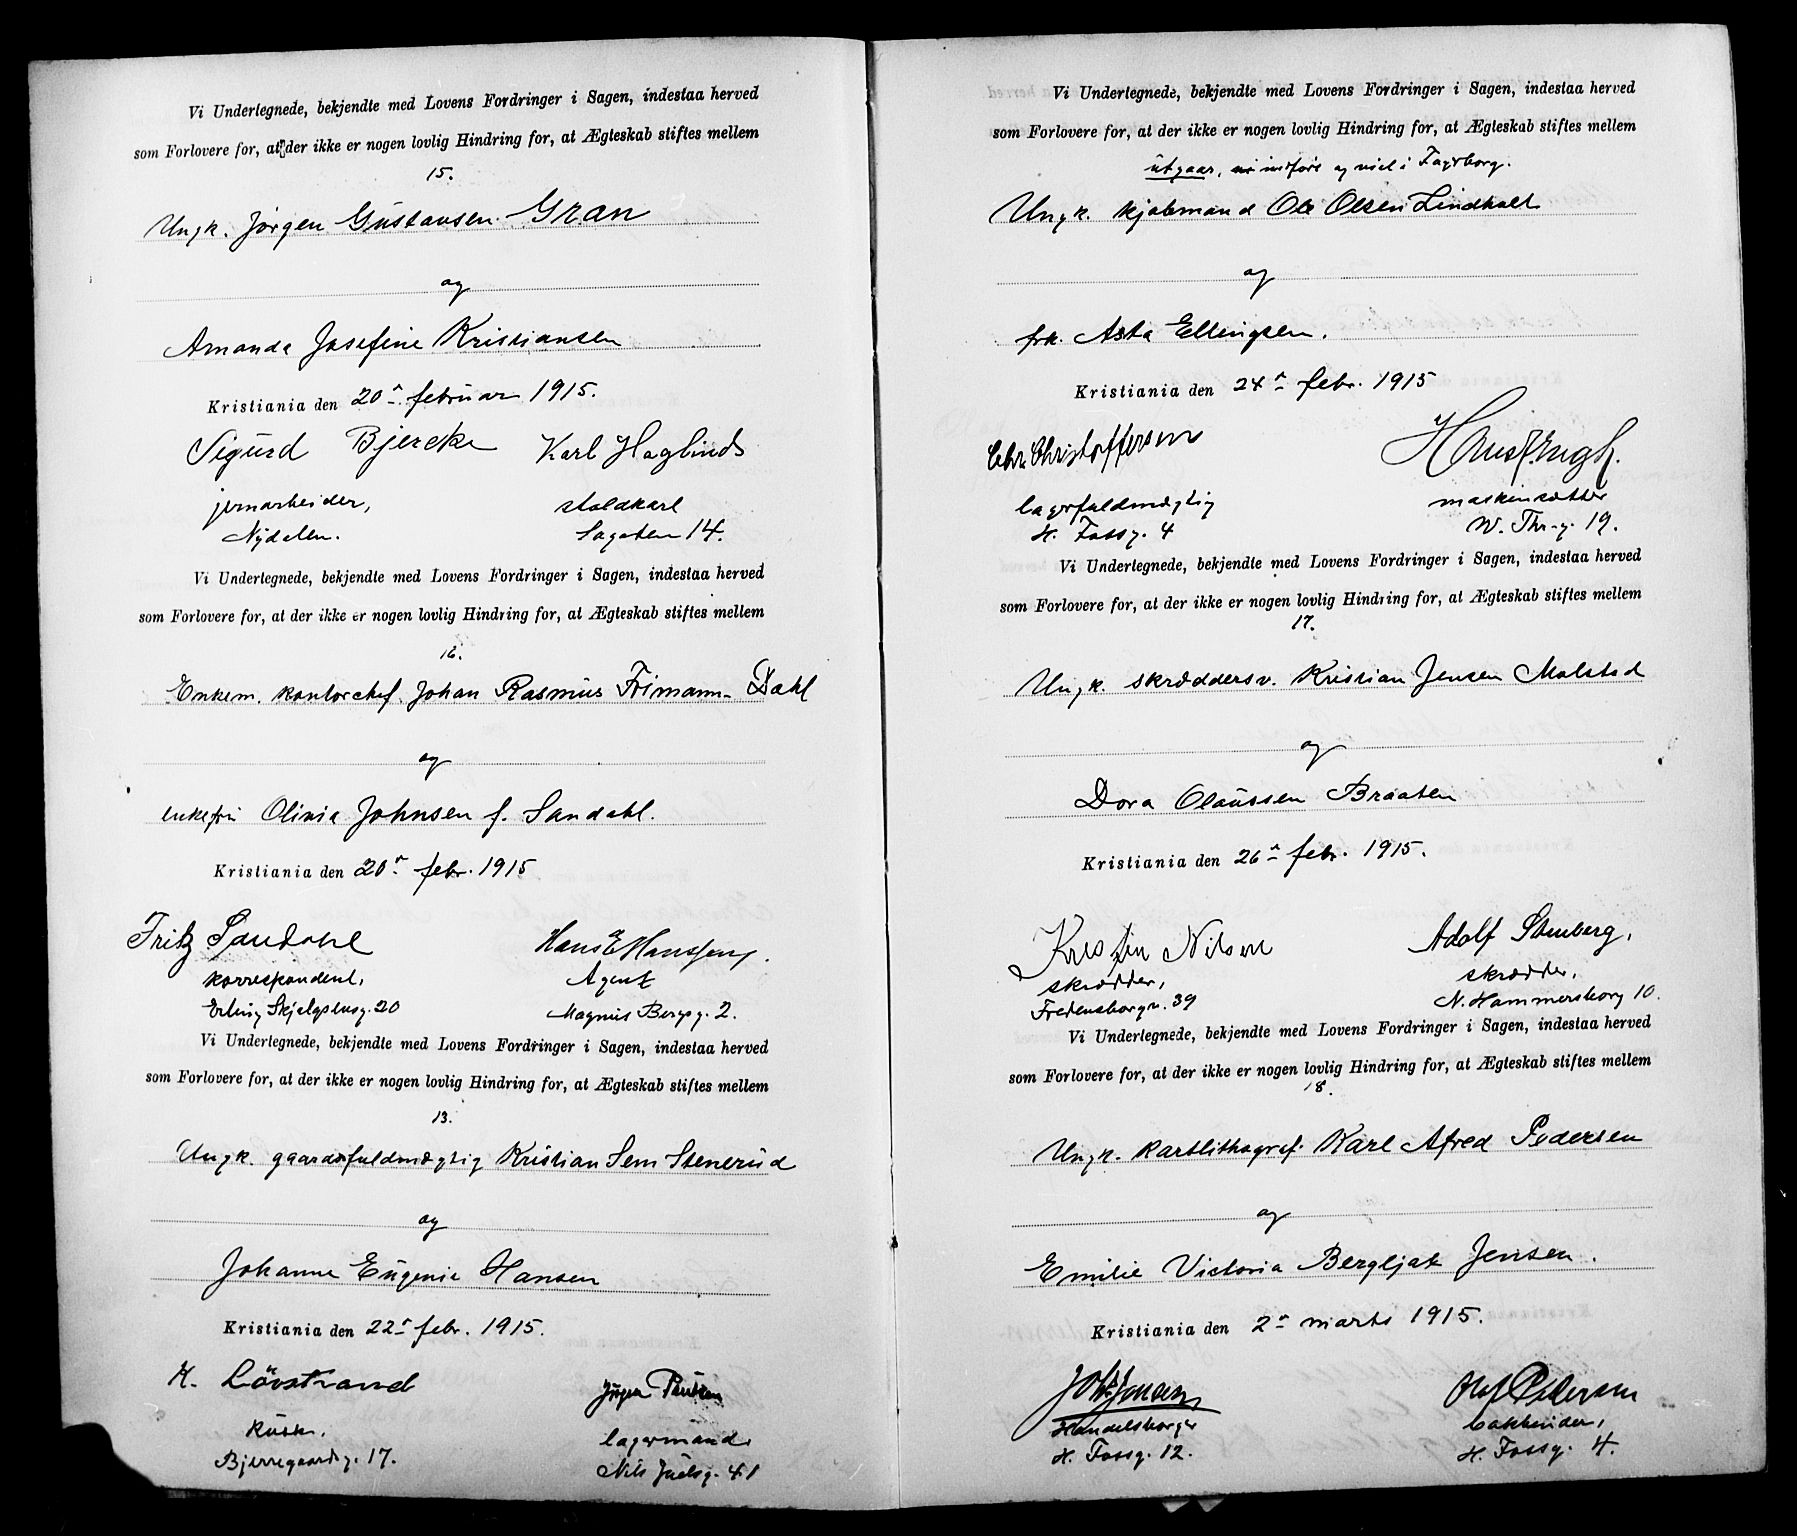 Vi Undertegnede, bekjendte med Lovens Fordringer i Sagen, indestaa herved
som Forlovere for, at der ikke er nogen lovlig Hindring for, at Ægteskab stiftes mellem
15.
Ungk. Jørgen Gustavsen Gran
og
Amanda Josefine Kristiansen
Kristiania den 20de februar 1915.
Sigurd Bjercke Karl Haglinds
jernarbeider, staldkarl
Nydalen. Sagaten 14.
Vi Undertegnede, bekjendte med Lovens Fordringer i Sagen, indestaa herved
som Forlovere for, at der ikke er nogen lovlig Hindring for, at Ægteskab stiftes mellem
16.
Enkem. kontorchef. Johan Rasmus Frimann-Dahl
og
enkefru Olivia Johnsen f. Sandahl.
Kristiania den 20de febr. 1915
Fritz Sandahl Hans E Hanssen.
korrespondent, Agent
Erling Skjalgsensg. 20 Magnus Bergsg. 2.
Vi Undertegnede, bekjendte med Lovens Fordringer i Sagen, indestaa herved
som Forlovere for, at der ikke er nogen lovlig Hindring for, at Ægteskab stiftes mellem
13.
Ungk. gaardsfuldmægtig Kristian Sem Stenerud
og
Johanne Eugenie Hansen
Kristiania den 22de febr. 1915.
K. Lövstrand Jørgen
kusk, lagermand.
Bjerregaardsg. 17. Nils Juelsg. 41
Vi Undertegnede, bekjendte med Lovens Fordringer i Sagen, indestaa herved
som Forlovere for, at der ikke er nogen lovlig Hindring for, at Ægteskab stiftes mellem
utgaar, indføres og viet i Fagerborg.
Ungk. kjøbmand Ole Olsen Lindholt
og
frk. Asta Ellingsen.
Kristiania den 24de febr. 1915
Chr. Christoffersen
lagerfuldmægtig maskinsætter
H. Fossg. 4 W. Thr-g. 19.
Vi Undertegnede, bekjendte med Lovens Fordringer i Sagen, indestaa herved
som Forlovere for, at der ikke er nogen lovlig Hindring for, at Ægteskab stiftes mellem
17.
Ungk. skræddersv. Kristian Jensen Molstad
og
Dora Olaussen Braaten
Kristiania den 26de febr. 1915.
Nilsen Adolf Stenberg,
skrædder, skrædder,
Fredensborgv. 39 N. Hammersborg 10.
Vi Undertegnede, bekjendte med Lovens Fordringer i Sagen, indestaa herved
som Forlovere for, at der ikke er nogen lovlig Hindring for, at Ægteskab stiftes mellem
18.
Ungk. kartlithograf. Karl Afred Pedersen
og
Emilie Victoria Bergljot Jensen.
Kristiania den 2de marts 1915.
Olaf Pedersen
Handelsborger bokbinder,
H. Fossg. 12. H. Fossg. 4.